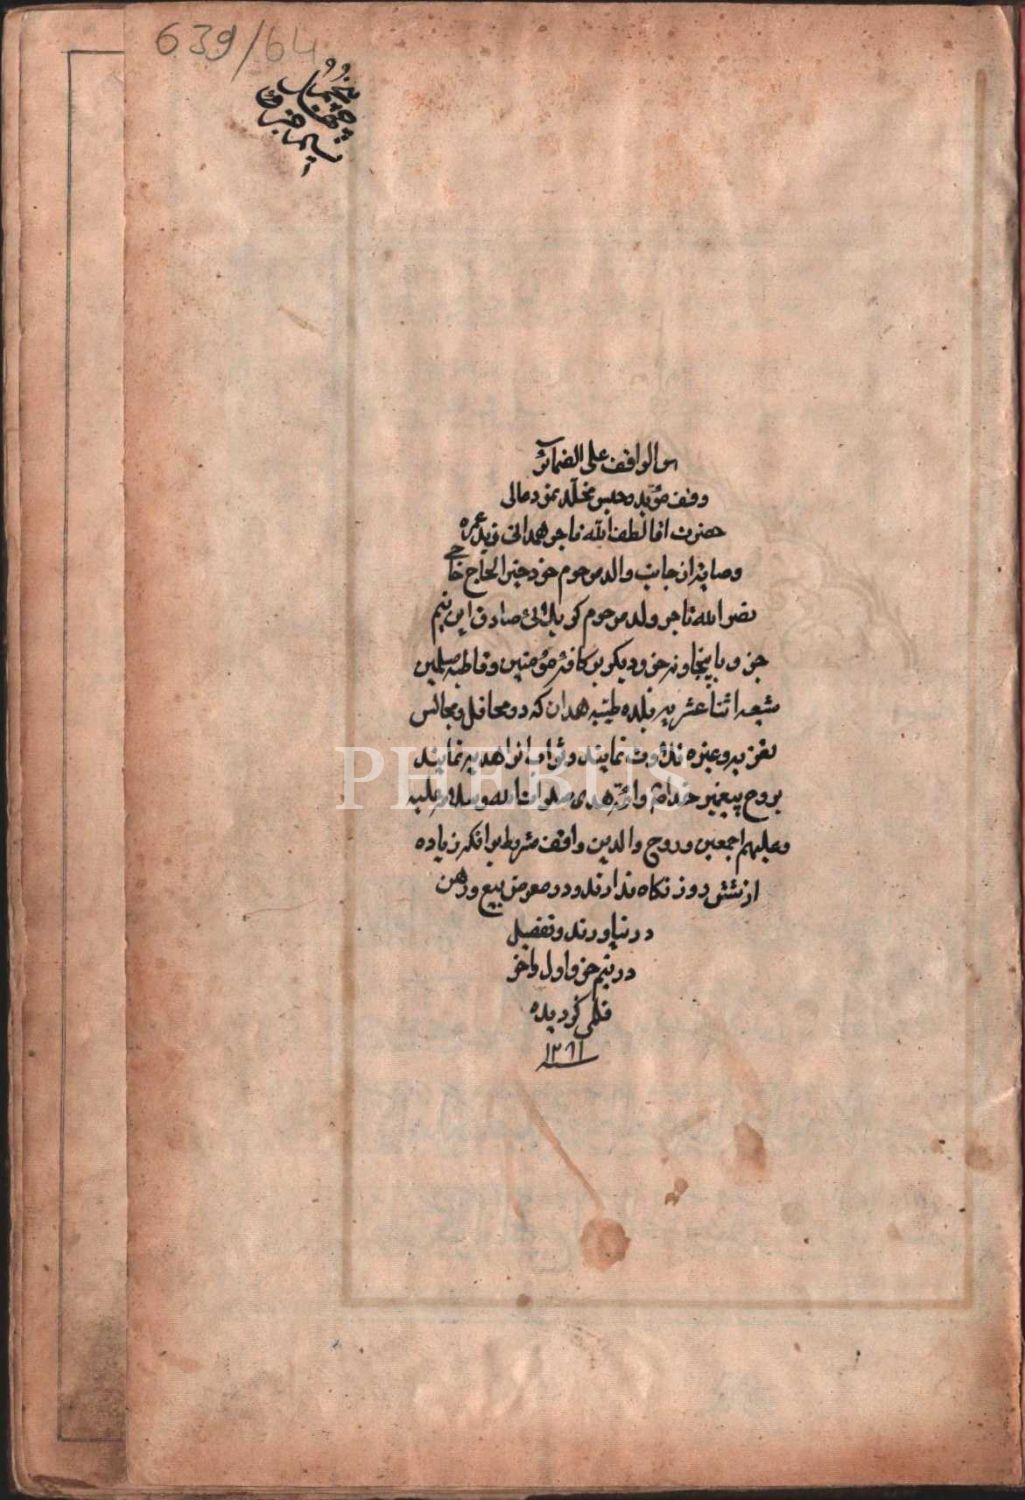 639/64
هو الواقف علی الضمائر
وقف مؤبد و حبس مخلد نمود عالی
حضرت اقا لطف الله تاجر همدانی زید عمره
وصایة از جانب والد مرحوم خود جنة الحاج حاجی
نصر الله تاجر ولد مرحوم کربلائی صادق این نیم
جزو با پنجاه و نه جزو دیگر بر کافه مؤمنین و قاطبه مسلمین
شیعه اثنا عشریه بلده طیبه همدان که در محافل و مجالس
تعزیه و غیره تلاوت نمایند و ثواب انرا هدیه نمایند
بروح پیغمبر خدام و ائمه هدی صلوات الله و سلامه علیه
و علیهم اجمعین و روح والدین واقف مشروط بر انکه زیاده
از شش روز نگاه ندارند و در معرض بیع و رهن
در نیاورند و تفصیل
در نیم جزو اول و اخر
قلمی گردیده
سنه ۱۲۶۱
PHEBUS